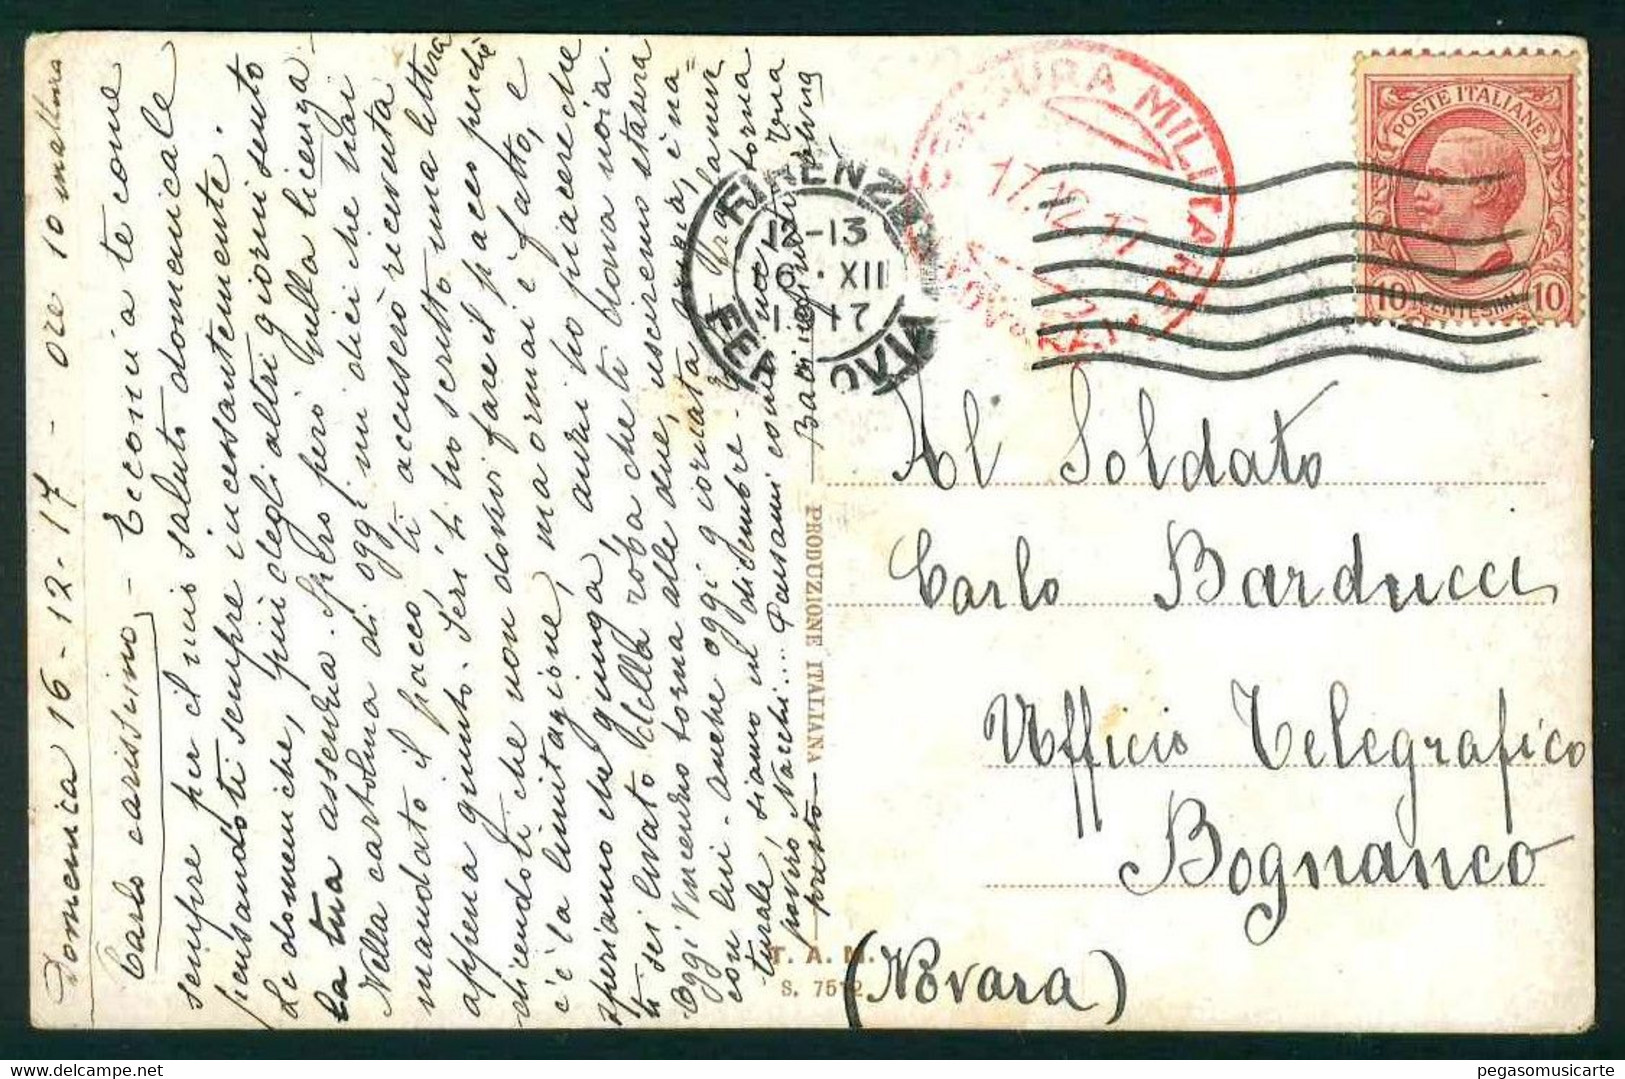 Domenica 16-12-17 - ore 10 mattina
Carlo carissimo, - Eccomi a te come
sempre per il mio saluto domenicale
pensandoti sempre incessantemente.
Le domeniche, più degli altri giorni sento
la tua assenza. Spero però nulla licenza.
Nella cartolina di oggi mi dici che hai
mandato il pacco, ti accuserò ricevuta
appena giunto. Ieri ti ho scritto una lettera
dicendoti che non dovevi fare il pacco perchè
c'è la limitazione, ma ormai è fatto, e
speriamo che giunga, anzi ho piacere che
ti sei levato della roba che ti dava noia.
Oggi Vincenzo torna alle due, usciremo stasera
con lui - anche oggi giornata grigia, è na=
turale, siamo in dicembre - E fra la neve
povero Nacchi... Passami come torna
presto - Baci infiniti tua
FIRENZE
FERROVIA
12-13
16·XII
1917
CENSURA MILITARE
17.12.17
NOVARA
POSTE ITALIANE
10 CENTESIMI 10
PRODUZIONE ITALIANA
T. A. M.
S. 7512
Al Soldato
Carlo Barducci
Ufficio Telegrafico
Bognanco
(Novara)
pegasomusicarte
www.delcampe.net